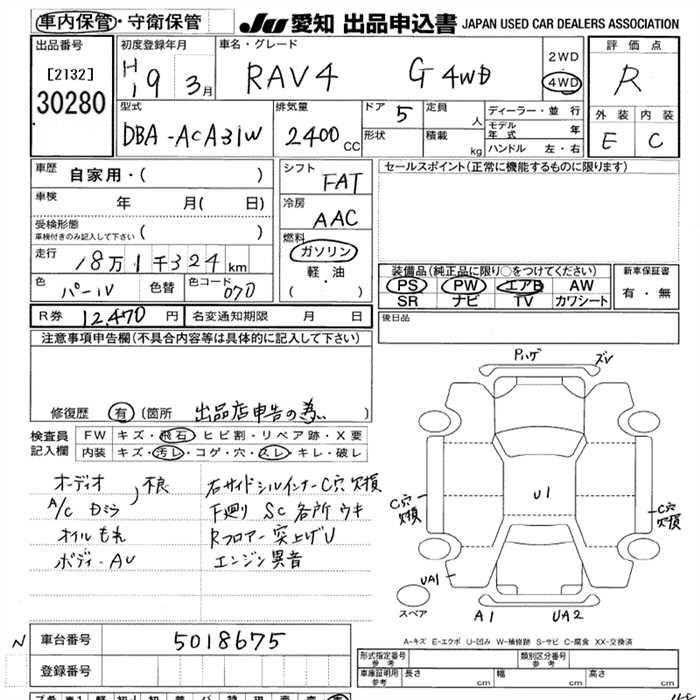 車内保管・守衛保管
JU 愛知 出品申込書 JAPAN USED CAR DEALERS ASSOCIATION
出品番号
[2132]
30280
初度登録年月
H19年3月
車名・グレード
RAV4 G 4WD
2WD
4WD
評価点
R
外装 内装
E C
型式
DBA-ACA31W
排気量
2400cc
ドア 5
形状
定員 人
積載 kg
ディーラー・並行
モデル年式 年
ハンドル 左・右
車歴 自家用・( )
車検 年 月( 日)
受検形態
車検付きのみ記入して下さい ( )
走行 18万1千324km
色 パール 色替 色コード 070
シフト FAT
冷房 AAC
燃料
ガソリン
軽・油
( ・ )
セールスポイント(正常に機能するものに限ります)
装備品(純正品に限り○をつけてください)
PS PW エアB AW
SR ナビ TV カワシート
新車保証書
有・無
R券 12,470円 名変通知期限 月 日
後日品
注意事項申告欄(不具合内容等は具体的に記入して下さい)
修復歴 有 (箇所 出品店申告の為 )
検査員記入欄
FW キズ・飛石・ヒビ割・リペア跡・X要
内装 キズ・汚レ・コゲ・穴・スレ・キレ・破レ
オーディオ
A/C カミラ 不良
オイルもれ
ボディーAU
右サイドシルインナーC穴欠損
下廻りSC各所ウキ
Rフロアー突上げU
エンジン異音
Pハゲ
ズレ
C穴欠損
U1
C穴欠損
UA1
スペア
A1
UA2
A-キズ E-エクボ U-凹み W-補修跡 S-サビ C-腐食 XX-交換済
N
車台番号 5018675
登録番号
形式指定番号 参考
類別区分番号 参考
車庫証明用 参考 長さ cm 幅 cm 高さ cm